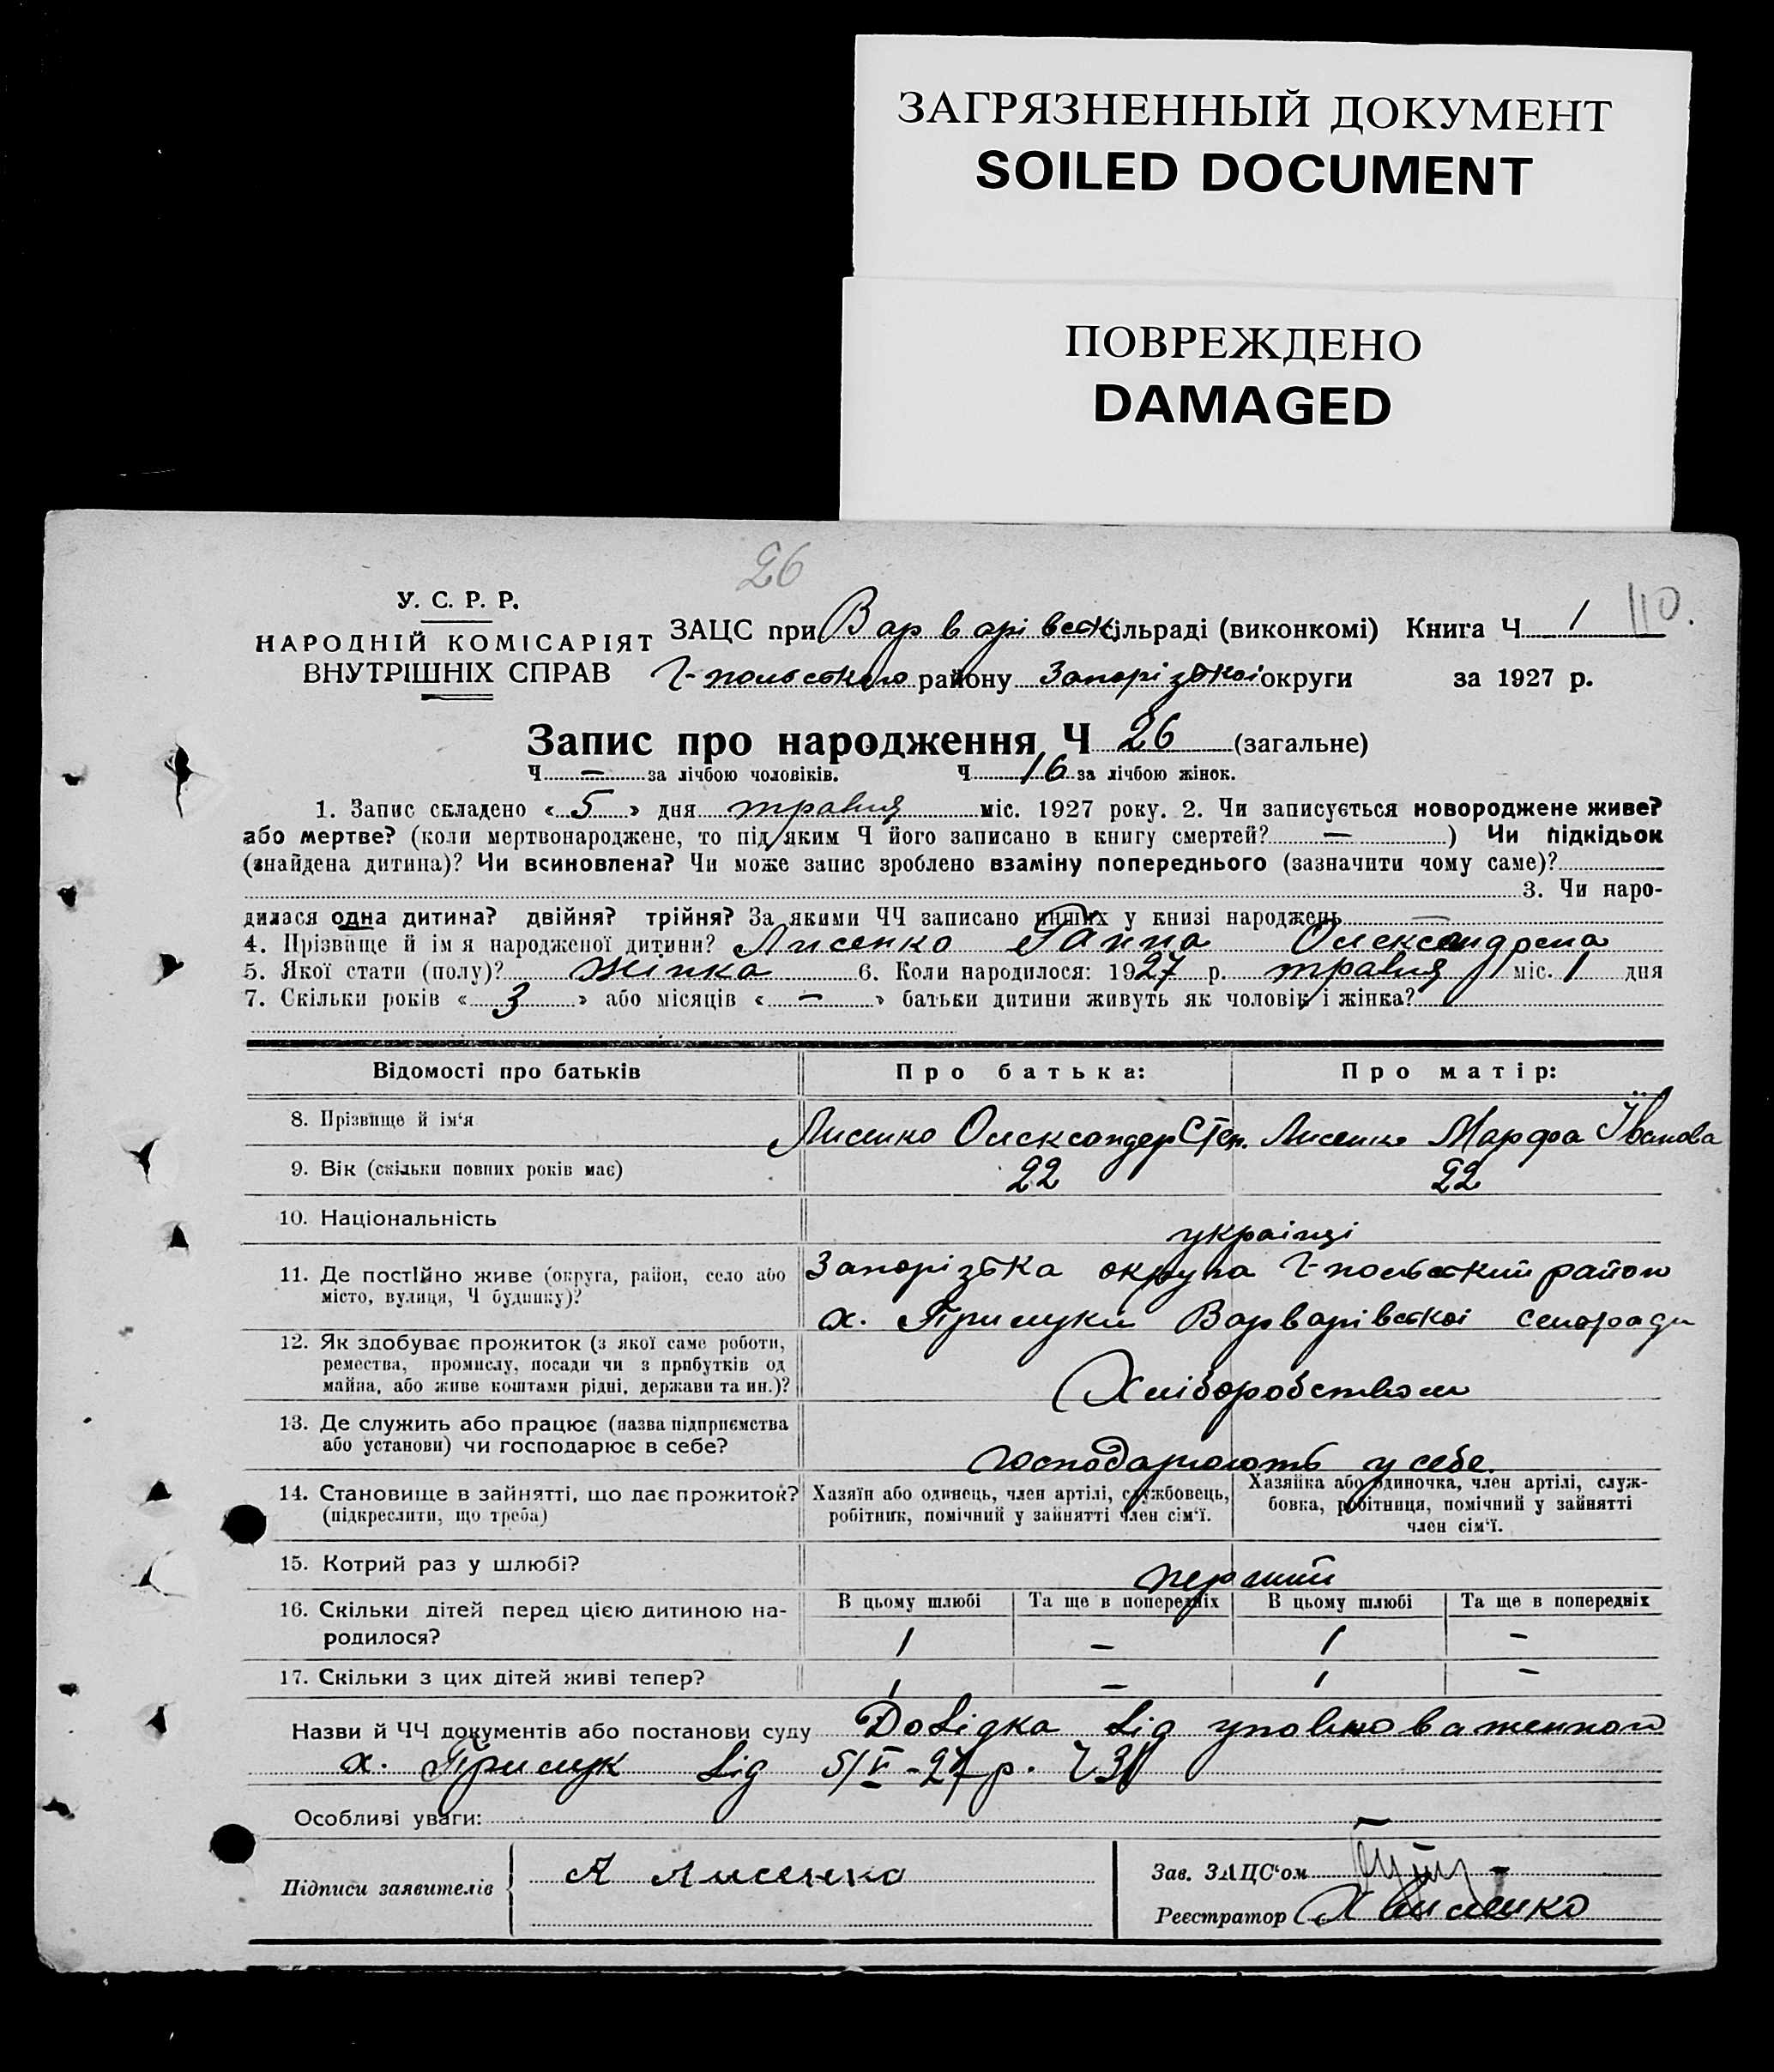 ЗАГРЯЗНЕННЫЙ ДОКУМЕНТ
SOILED DOCUMENT
ПОВРЕЖДЕНО
DAMAGED
26
110.
У. С. Р. Р.
НАРОДНІЙ КОМІСАРІЯТ
ВНУТРІШНІХ СПРАВ
ЗАЦС при Варварівськ сільраді (виконкомі) Книга Ч 1
Г-польського району Запорізької округи за 1927 р.
Запис про народження Ч 26 (загальне)
Ч — за лічбою чоловіків. Ч 16 за лічбою жінок.
1. Запис складено «5» дня травня міс. 1927 року. 2. Чи записується новороджене живе?
або мертве? (коли мертвонароджене, то під яким Ч його записано в книгу смертей? — ) Чи підкідьок
(знайдена дитина)? Чи всиновлена? Чи може запис зроблено взаміну попереднього (зазначити чому саме)?
3. Чи наро-
дилася одна дитина? двійня? трійня? За якими ЧЧ записано инших у книзі народжень —
4. Прізвище й ім я народженої дитини? Лисенко Ганна Олександрена
5. Якої стати (полу)? жінка 6. Коли народилося: 1927 р. травня міс. 1 дня
7. Скільки років «3» або місяців «—» батьки дитини живуть як чоловік і жінка?
Відомості про батьків Про батька: Про матір:
8. Прізвище й ім'я Лисенко Олександер Степ. Лисенко Марфа Іванова
9. Вік (скільки повних років має) 22 22
10. Національність українці
11. Де постійно живе (округа, район, село або Запорізька округа Г-польський район
місто, вулиця, Ч будинку)? х. Прилуки Варварівської сельради
12. Як здобуває прожиток (з якої саме роботи,
ремества, промислу, посади чи з прибутків од
майна, або живе коштами рідні, держави та ин.)? Хліборобством
13. Де служить або працює (назва підприємства
або установи) чи господарює в себе? господарюють у себе.
14. Становище в зайнятті, що дає прожиток? Хазяїн або одинець, член артілі, службовець, Хазяйка або одиночка, член артілі, служ-
(підкреслити, що треба) робітник, помічний у зайнятті член сім'ї. бовка, робітниця, помічний у зайнятті
член сім'ї.
15. Котрий раз у шлюбі? перший
16. Скільки дітей перед цією дитиною на- В цьому шлюбі Та ще в попередніх В цьому шлюбі Та ще в попередніх
родилося? 1 — 1 —
17. Скільки з цих дітей живі тепер? 1 — 1 —
Назви й ЧЧ документів або постанови суду Довідка від уповноваженного
х. Прилук від 5/V-27 р. Ч 31
Особливі уваги:
Підписи заявителів А Лисенко
Зав. ЗАЦС'ом
Реєстратор